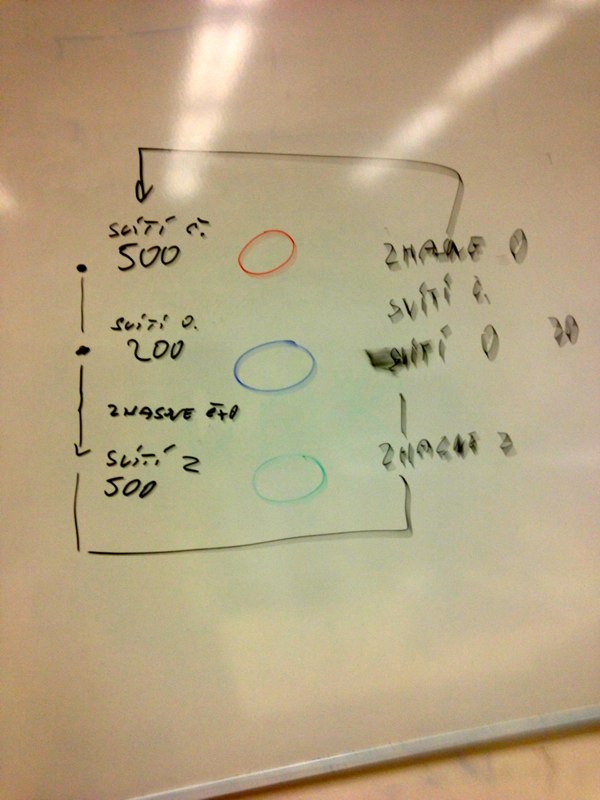 SVÍTÍ Č.
500
SVÍTÍ O.
200
ZHASNE Č+O
SVÍTÍ Z
500
ZHASNE O
SVÍTÍ Č.
SVÍTÍ O
ZHASNE Z